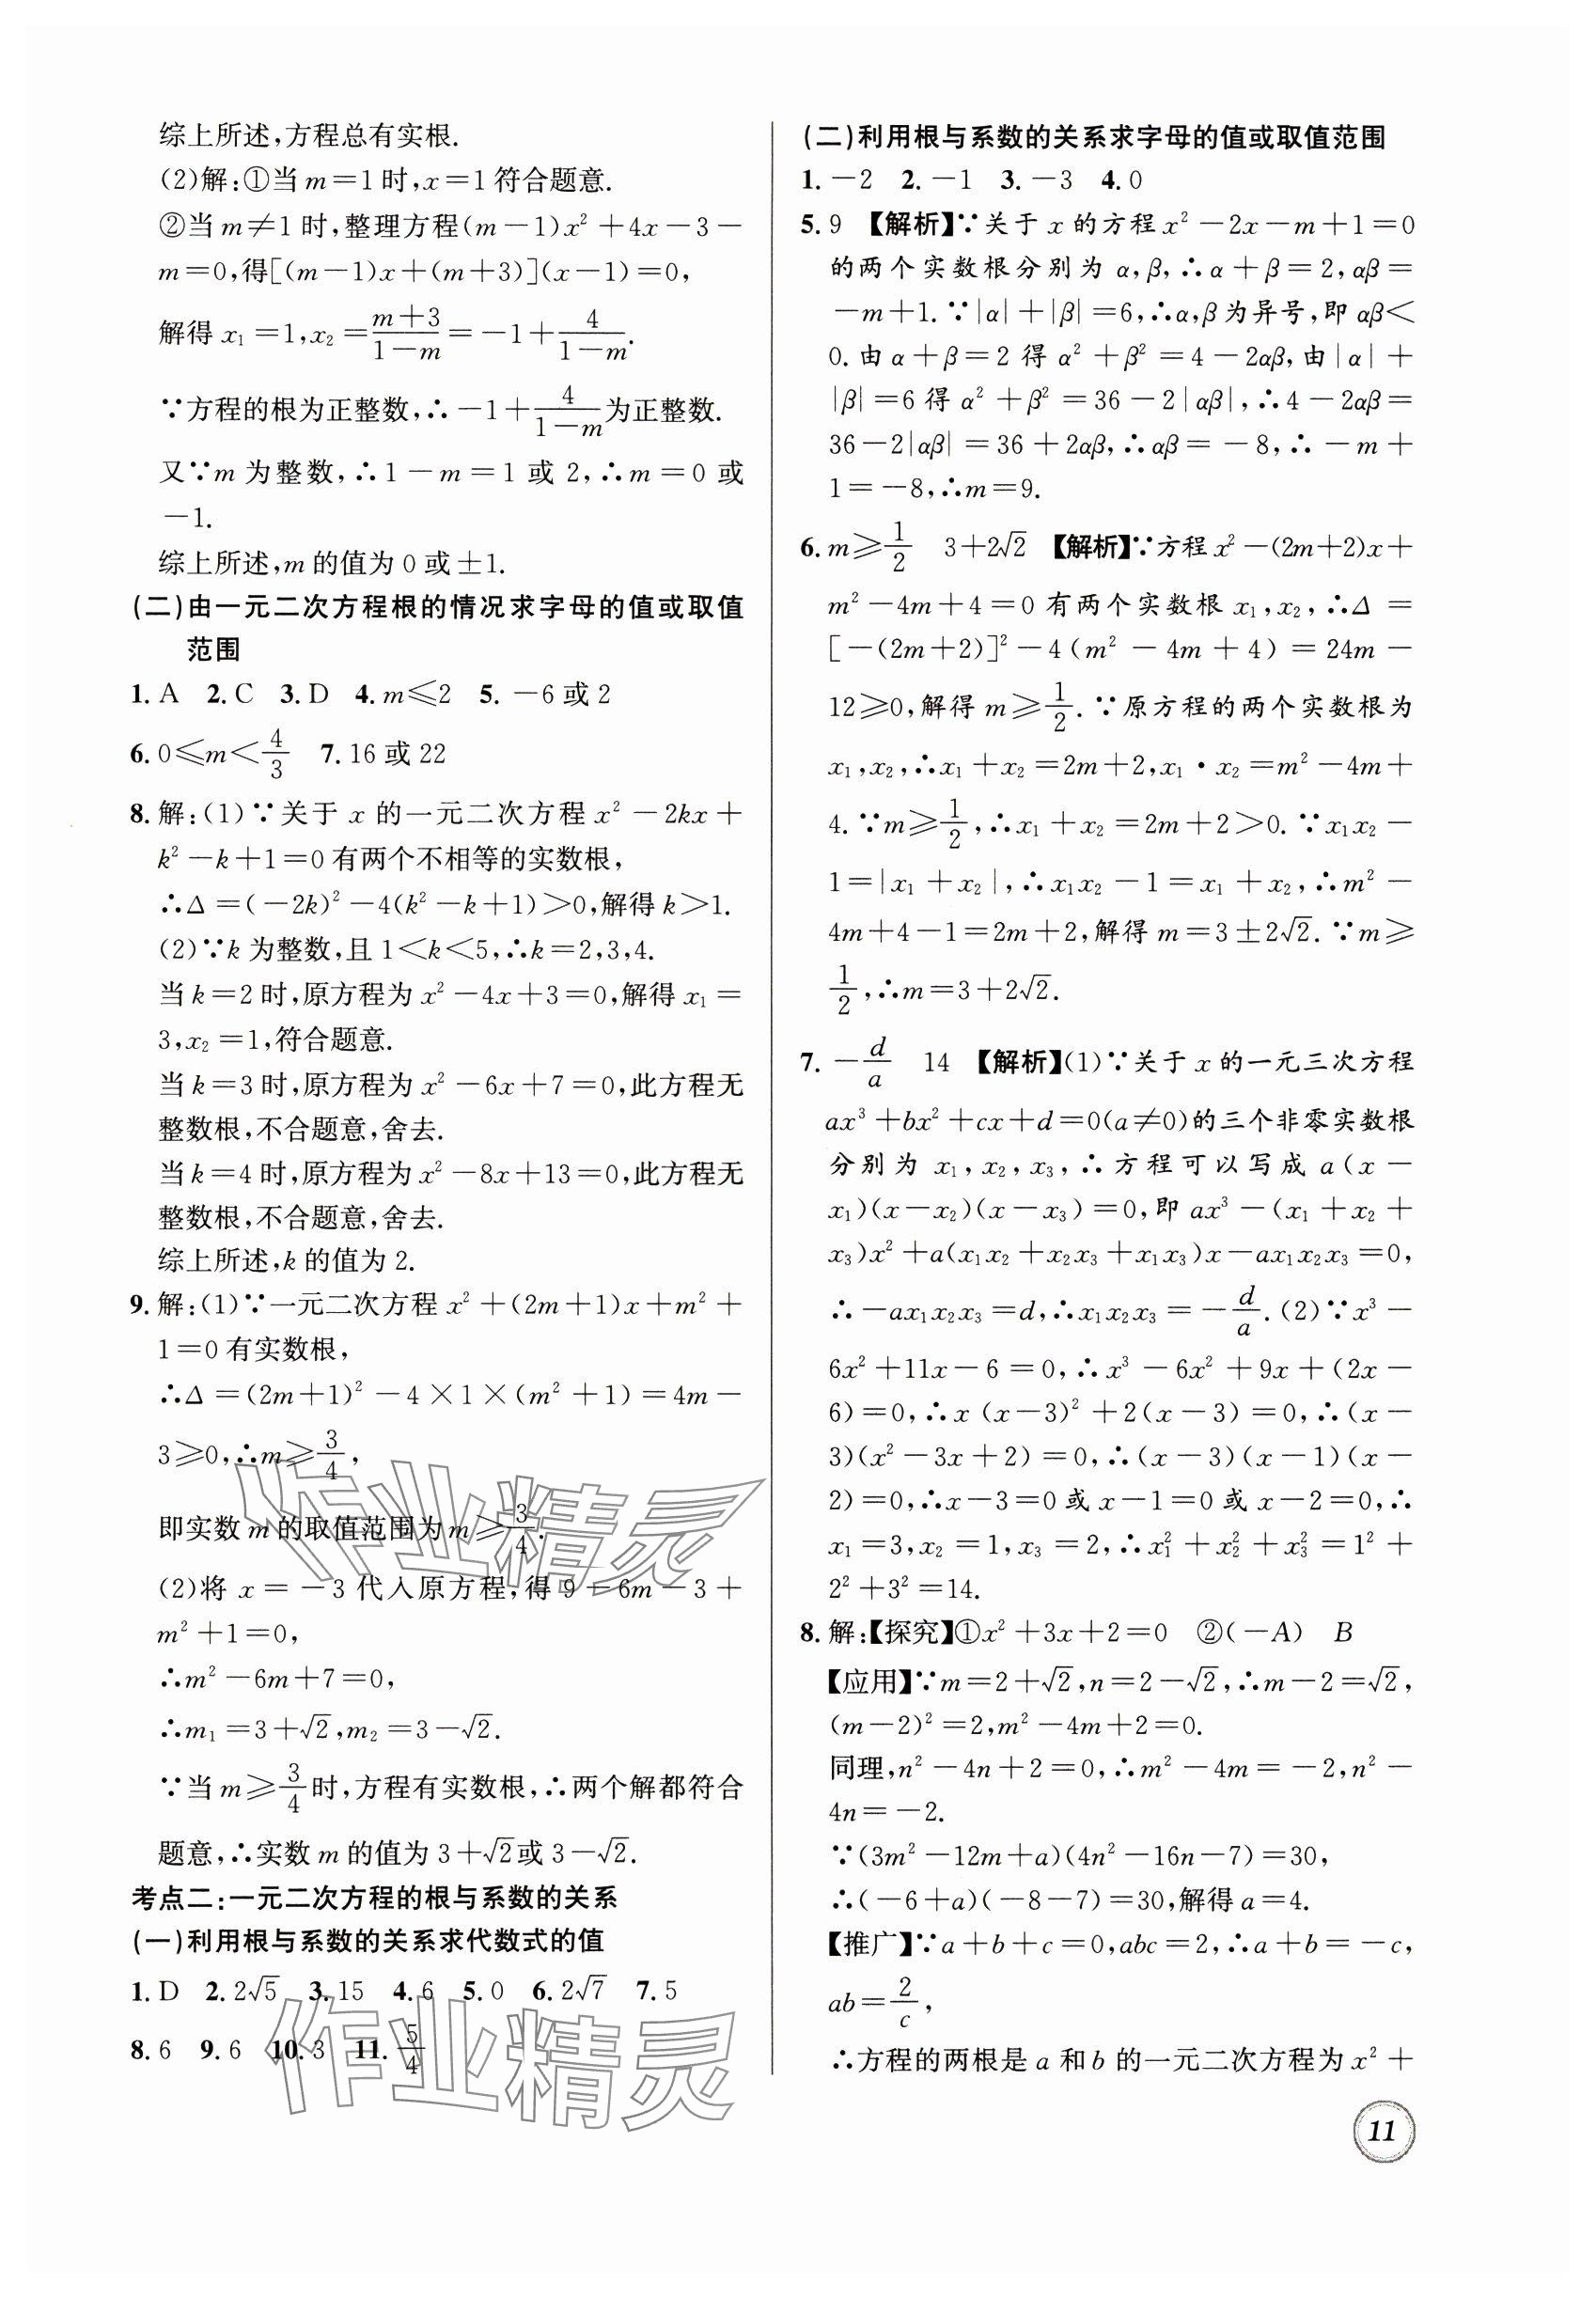 综上所述,方程总有实根.
(2)解:①当 m=1 时,x=1 符合题意.
②当 m≠1 时,整理方程(m-1)x²+4x-3-
m=0,得[(m-1)x+(m+3)](x-1)=0,
解得 x₁=1,x₂=\frac{m+3}{1-m}=-1+\frac{4}{1-m}.
∵方程的根为正整数,∴-1+\frac{4}{1-m}为正整数.
又∵m 为整数,∴1-m=1 或 2,∴m=0 或
-1.
综上所述,m 的值为 0 或±1.
(二)由一元二次方程根的情况求字母的值或取值
范围
1. A 2. C 3. D 4. m≤2 5. -6 或 2
6. 0≤m<\frac{4}{3} 7. 16 或 22
8. 解:(1)∵关于 x 的一元二次方程 x²-2kx+
k²-k+1=0 有两个不相等的实数根,
∴Δ=(-2k)²-4(k²-k+1)>0,解得 k>1.
(2)∵k 为整数,且 1<k<5,∴k=2,3,4.
当 k=2 时,原方程为 x²-4x+3=0,解得 x₁=
3,x₂=1,符合题意.
当 k=3 时,原方程为 x²-6x+7=0,此方程无
整数根,不合题意,舍去.
当 k=4 时,原方程为 x²-8x+13=0,此方程无
整数根,不合题意,舍去.
综上所述,k 的值为 2.
9. 解:(1)∵一元二次方程 x²+(2m+1)x+m²+
1=0 有实数根,
∴Δ=(2m+1)²-4×1×(m²+1)=4m-
3≥0,∴m≥\frac{3}{4},
即实数 m 的取值范围为 m≥\frac{3}{4}.
(2)将 x=-3 代入原方程,得 9-6m-3+
m²+1=0,
∴m²-6m+7=0,
∴m₁=3+√2,m₂=3-√2.
∵当 m≥\frac{3}{4}时,方程有实数根,∴两个解都符合
题意,∴实数 m 的值为 3+√2或 3-√2.
考点二:一元二次方程的根与系数的关系
(一)利用根与系数的关系求代数式的值
1. D 2. 2√5 3. 15 4. 6 5. 0 6. 2√7 7. 5
8. 6 9. 6 10. 3 11. \frac{5}{4}
(二)利用根与系数的关系求字母的值或取值范围
1. -2 2. -1 3. -3 4. 0
5. 9 【解析】∵关于 x 的方程 x²-2x-m+1=0
的两个实数根分别为 α,β,∴α+β=2,αβ=
-m+1.∵|α|+|β|=6,∴α,β为异号,即 αβ<
0.由 α+β=2 得 α²+β²=4-2αβ,由|α|+
|β|=6 得 α²+β²=36-2|αβ|,∴4-2αβ=
36-2|αβ|=36+2αβ,∴αβ=-8,∴-m+
1=-8,∴m=9.
6. m≥\frac{1}{2} 3+2√2 【解析】∵方程 x²-(2m+2)x+
m²-4m+4=0 有两个实数根 x₁,x₂,∴Δ=
[-(2m+2)]²-4(m²-4m+4)=24m-
12≥0,解得 m≥\frac{1}{2}.∵原方程的两个实数根为
x₁,x₂,∴x₁+x₂=2m+2,x₁·x₂=m²-4m+
4.∵m≥\frac{1}{2},∴x₁+x₂=2m+2>0.∵x₁x₂-
1=|x₁+x₂|,∴x₁x₂-1=x₁+x₂,∴m²-
4m+4-1=2m+2,解得 m=3±2√2.∵m≥
\frac{1}{2},∴m=3+2√2.
7. -\frac{d}{a} 14 【解析】(1)∵关于 x 的一元三次方程
ax³+bx²+cx+d=0(a≠0)的三个非零实数根
分别为 x₁,x₂,x₃,∴方程可以写成 a(x-
x₁)(x-x₂)(x-x₃)=0,即 ax³-(x₁+x₂+
x₃)x²+a(x₁x₂+x₂x₃+x₁x₃)x-ax₁x₂x₃=0,
∴-ax₁x₂x₃=d,∴x₁x₂x₃=-\frac{d}{a}.(2)∵x³-
6x²+11x-6=0,∴x³-6x²+9x+(2x-
6)=0,∴x(x-3)²+2(x-3)=0,∴(x-
3)(x²-3x+2)=0,∴(x-3)(x-1)(x-
2)=0,∴x-3=0 或 x-1=0 或 x-2=0,∴
x₁=3,x₂=1,x₃=2,∴x₁²+x₂²+x₃²=1²+
2²+3²=14.
8. 解:【探究】①x²+3x+2=0 ②(-A) B
【应用】∵m=2+√2,n=2-√2,∴m-2=√2,
(m-2)²=2,m²-4m+2=0.
同理,n²-4n+2=0,∴m²-4m=-2,n²-
4n=-2.
∵(3m²-12m+a)(4n²-16n-7)=30,
∴(-6+a)(-8-7)=30,解得 a=4.
【推广】∵a+b+c=0,abc=2,∴a+b=-c,
ab=\frac{2}{c},
∴方程的两根是 a 和 b 的一元二次方程为 x²+
11
作业精灵
作业精灵